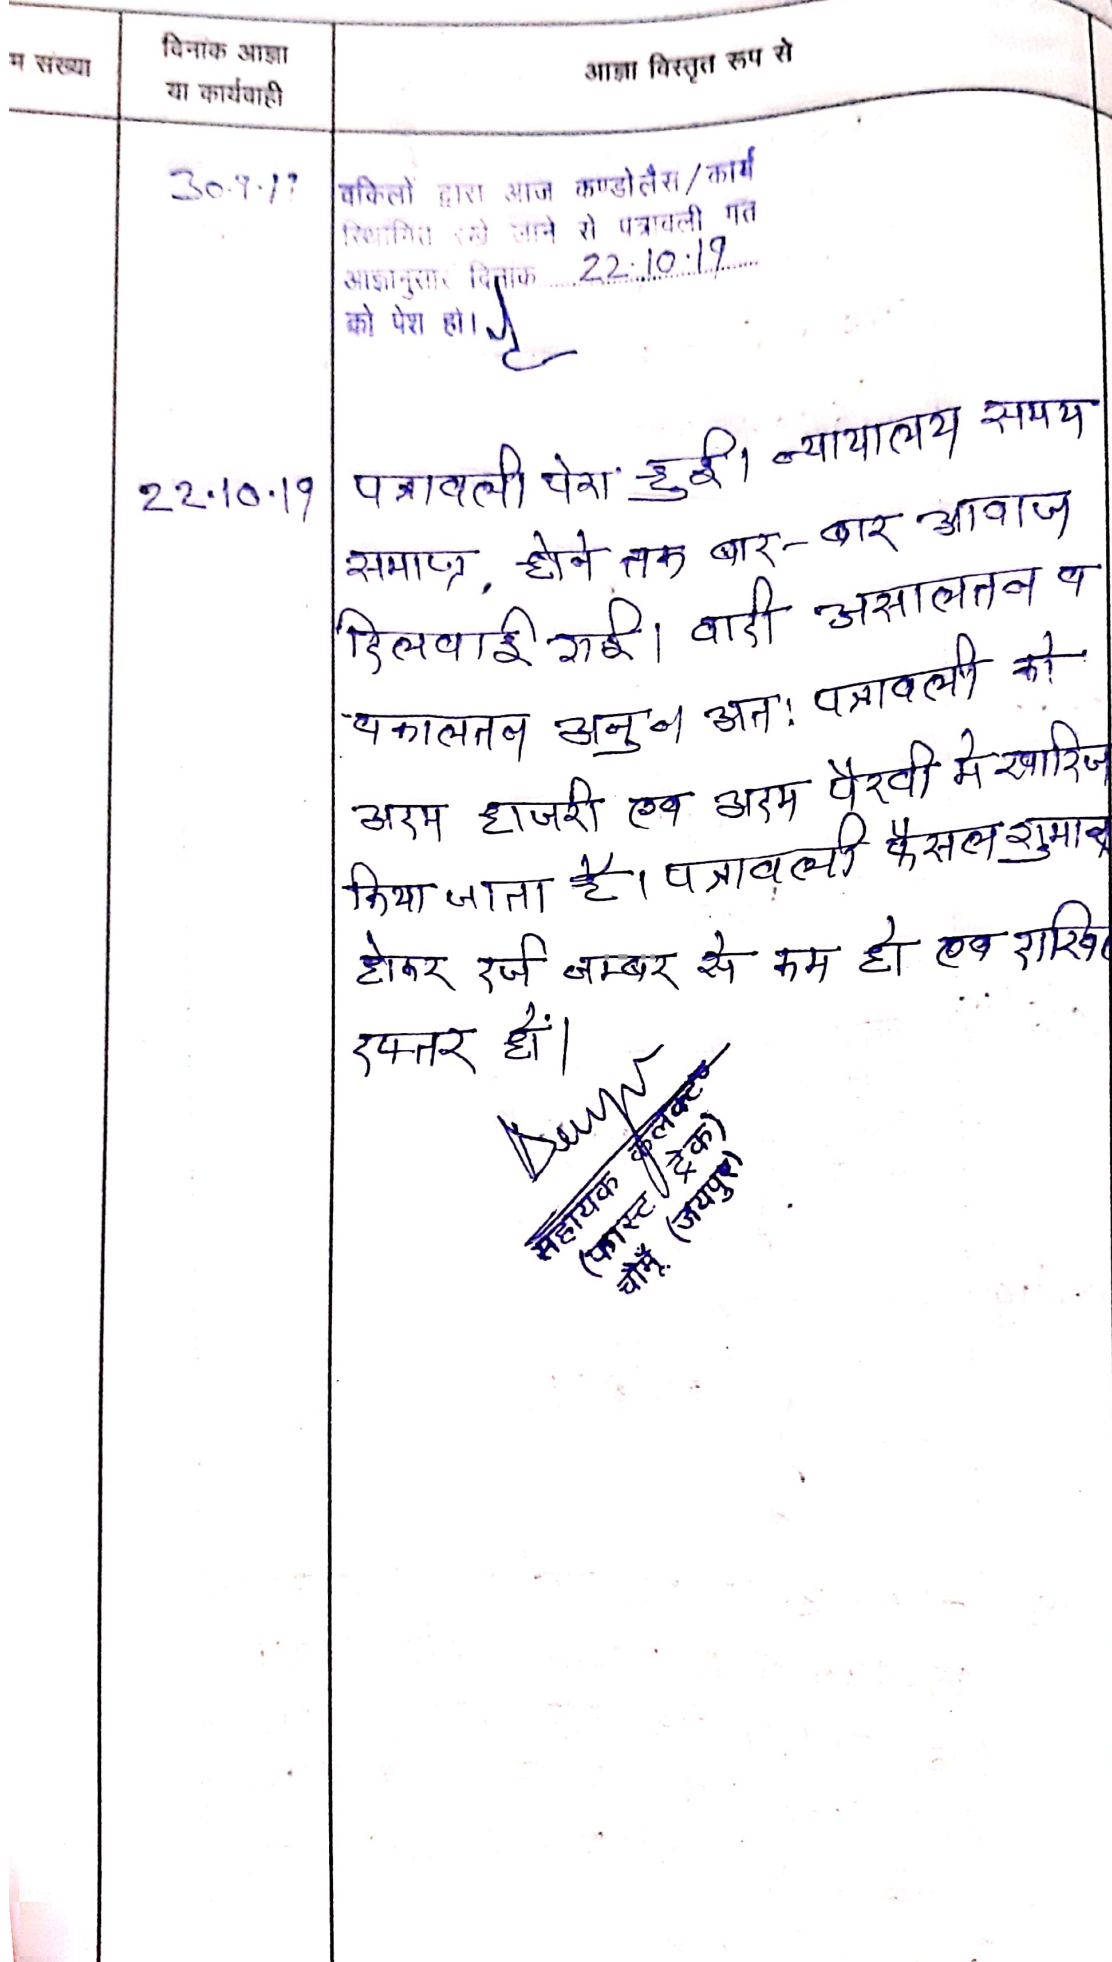 म संख्या
दिनांक आज्ञा
या कार्यवाही
आज्ञा विस्तृत रूप से
30.9.19
वकिलों द्वारा आज कण्डोलैस/कार्य
स्थिगित रखे जाने से पत्रावली गत
आज्ञानुसार दिनांक 22.10.19
को पेश हो।
22.10.19
पत्रावली पेश हुई। न्यायालय समय
समाप्त, होने तक बार-बार आवाज
दिलवाई गई। वादी असालतन व
वकालतन अनु० अतः पत्रावली को
अदम हाजरी एव अदम पैरवी मे खारिज
किया जाता है। पत्रावली फैसल शुमार
होकर दर्ज नम्बर से कम हो एव दाखिल
दफ्तर हों।
सहायक कलक्टर
(फास्ट ट्रेक)
चौमूँ (जयपुर)